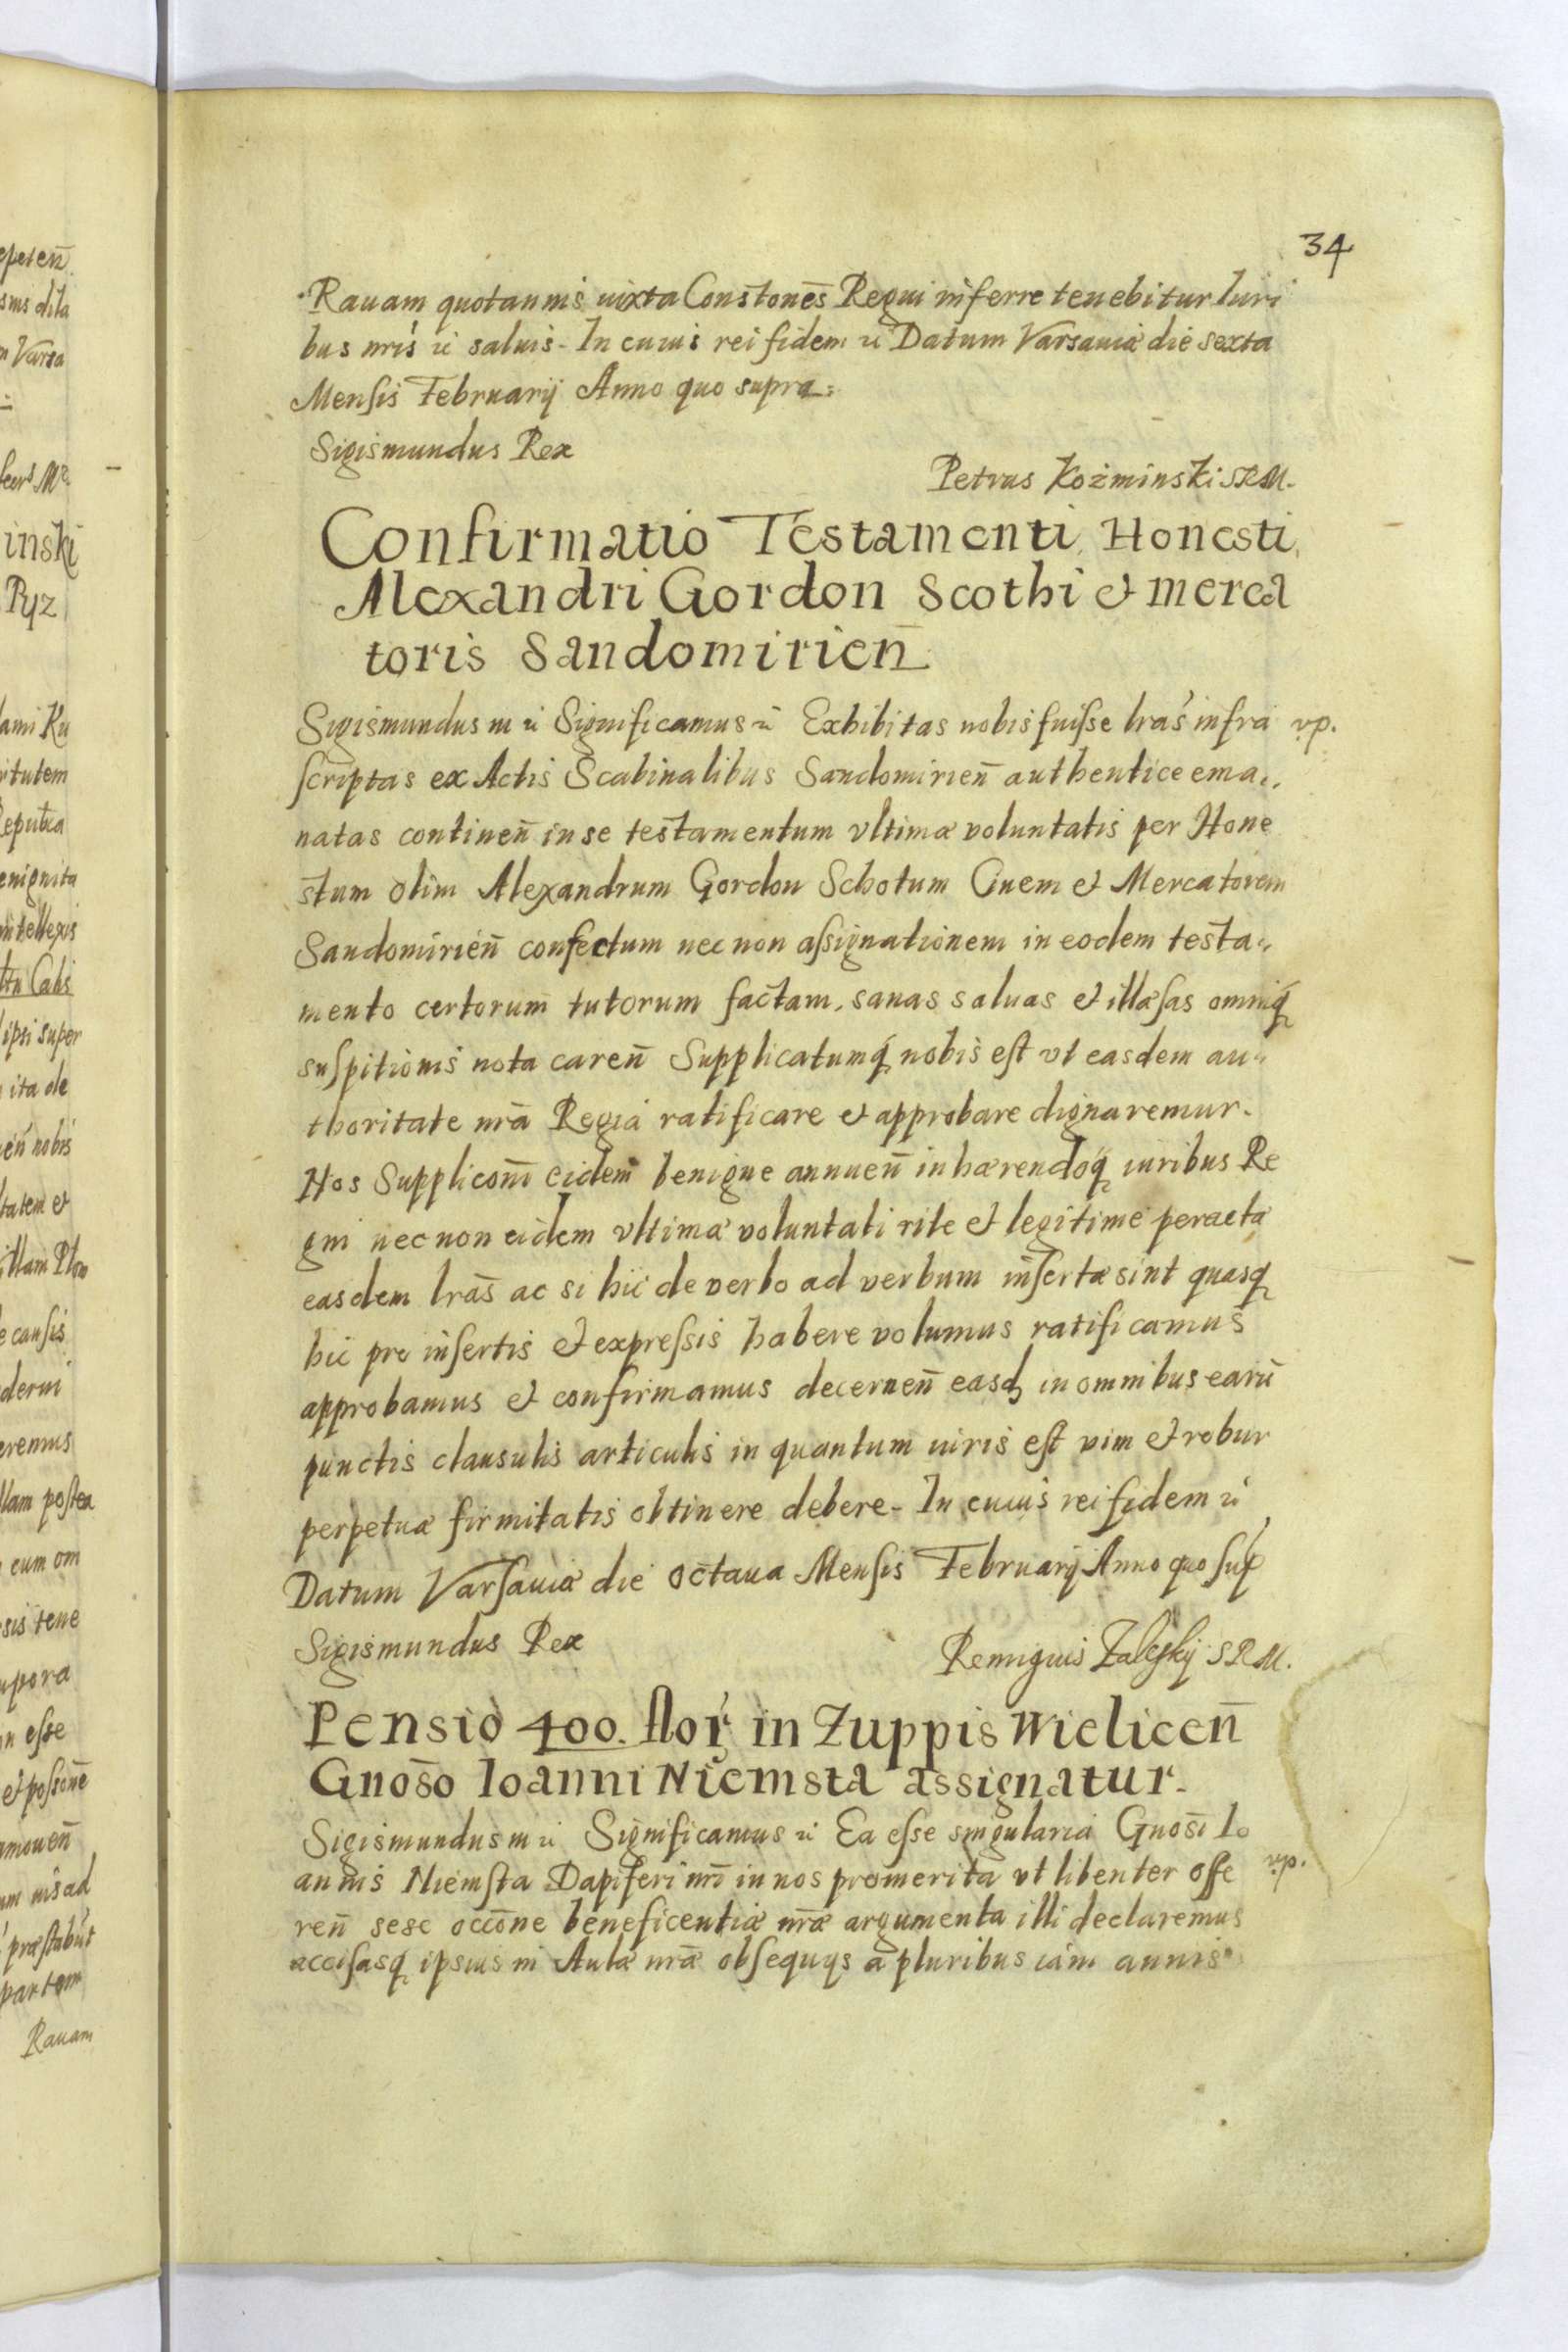 34
Rauam quotannis iuxta Constōnes Regni inferre tenebitur Iuri
bus nris ec saluis. In cuius rei fidem ec Datum Varsauiæ die sexta
Mensis Februarij Anno quo supra.
Sigismundus Rex
Petrus Kozminski SRM.
Confirmatio Testamenti Honesti
Alexandri Gordon Scothi et merca
toris Sandomirien̄
Sigismundus III ec Significamus ec Exhibitas nobis fuisse lras infra
vp.
scriptas ex Actis Scabinalibus Sandomirien̄ authentice ema..
natas continen̄ in se testamentum vltimæ voluntatis per Hone
stum olim Alexandrum Gordon Schotum Ciuem et Mercatorem
Sandomirien̄ confectum nec non assignationem in eodem testa..
mento certorum tutorum factam, sanas saluas et illæsas omniq́
suspitionis nota caren̄ Supplicatumq́ nobis est vt easdem au..
thoritate nrā Regia ratificare et approbare dignaremur.
Nos Supplicon̄i eidem benigne annuen̄ inhærendoq́ iuribus Re
gni nec non eidem vltimæ voluntati rite et legitime peractæ
easdem lrās ac si hic de verbo ad verbum insertæ sint quasq́
hic pro insertis et expressis habere volumus ratificamus
approbamus et confirmamus decernen̄ easdꝫ in omnibus earū
punctis clausulis articulis in quantum iuris est vim et robur
perpetuæ firmitatis obtinere debere. In cuius rei fidem ec
Datum Varsauiæ die octaua Mensis Februarij Anno quo sup̱
Sigismundus Rex
Remigius Zaleskij SRM.
Pensio 400. flor in Zuppis Wielicen̄
Gnōso Ioanni Niemsta assignatur.
Sigismundus III ec Significamus ec Ea esse singularia Gnōsi Io
annis Niemsta Dapiferi nrī in nos promerita vt libenter offe
vp.
ren̄ sese occōne beneficentiæ nrǣ argumenta illi declaremus
accisasq́ ipsius in Aula nrā obsequijs a pluribus iam annis